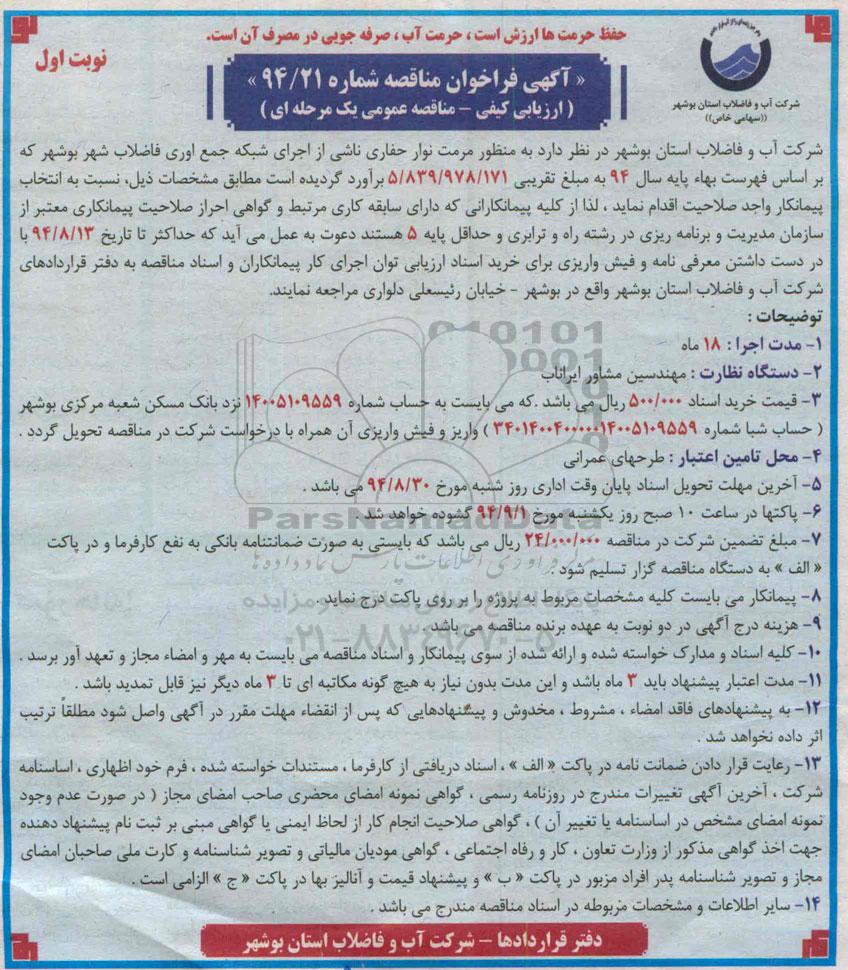 حفظ حرمت ها ارزش است ، حرمت آب ، صرفه جویی در مصرف آن است.
نوبت اول
« آگهی فراخوان مناقصه شماره ۹۴/۲۱ »
( ارزیابی کیفی – مناقصه عمومی یک مرحله ای )
شرکت آب و فاضلاب استان بوشهر
((سهامی خاص))
شرکت آب و فاضلاب استان بوشهر در نظر دارد به منظور مرمت نوار حفاری ناشی از اجرای شبکه جمع اوری فاضلاب شهر بوشهر که
بر اساس فهرست بهاء پایه سال ۹۴ به مبلغ تقریبی ۵/۸۳۹/۹۷۸/۱۷۱ برآورد گردیده است مطابق مشخصات ذیل، نسبت به انتخاب
پیمانکار واجد صلاحیت اقدام نماید ، لذا از کلیه پیمانکارانی که دارای سابقه کاری مرتبط و گواهی احراز صلاحیت پیمانکاری معتبر از
سازمان مدیریت و برنامه ریزی در رشته راه و ترابری و حداقل پایه ۵ هستند دعوت به عمل می آید که حداکثر تا تاریخ ۹۴/۸/۱۳ با
در دست داشتن معرفی نامه و فیش واریزی برای خرید اسناد ارزیابی توان اجرای کار پیمانکاران و اسناد مناقصه به دفتر قراردادهای
شرکت آب و فاضلاب استان بوشهر واقع در بوشهر – خیابان رئیسعلی دلواری مراجعه نمایند.
توضیحات :
۱– مدت اجرا : ۱۸ ماه
۲– دستگاه نظارت : مهندسین مشاور ایراناب
۳– قیمت خرید اسناد ۵۰۰/۰۰۰ ریال می باشد .که می بایست به حساب شماره ۱۴۰۰۵۱۰۹۵۵۹ نزد بانک مسکن شعبه مرکزی بوشهر
( حساب شبا شماره ۳۴۰۱۴۰۰۴۰۰۰۰۰۱۴۰۰۵۱۰۹۵۵۹ ) واریز و فیش واریزی آن همراه با درخواست شرکت در مناقصه تحویل گردد .
۴– محل تامین اعتبار : طرحهای عمرانی
۵– آخرین مهلت تحویل اسناد پایان وقت اداری روز شنبه مورخ ۹۴/۸/۳۰ می باشد .
۶– پاکتها در ساعت ۱۰ صبح روز یکشنبه مورخ ۹۴/۹/۱ گشوده خواهد شد .
۷– مبلغ تضمین شرکت در مناقصه ۲۴/۰۰۰/۰۰۰ ریال می باشد که بایستی به صورت ضمانتنامه بانکی به نفع کارفرما و در پاکت
« الف » به دستگاه مناقصه گزار تسلیم شود .
۸– پیمانکار می بایست کلیه مشخصات مربوط به پروژه را بر روی پاکت درج نماید .
۹– هزینه درج آگهی در دو نوبت به عهده برنده مناقصه می باشد
۱۰– کلیه اسناد و مدارک خواسته شده و ارائه شده از سوی پیمانکار و اسناد مناقصه می بایست به مهر و امضاء مجاز و تعهد آور برسد .
۱۱– مدت اعتبار پیشنهاد باید ۳ ماه باشد و این مدت بدون نیاز به هیچ گونه مکاتبه ای تا ۳ ماه دیگر نیز قابل تمدید باشد .
۱۲– به پیشنهادهای فاقد امضاء ، مشروط ، مخدوش و پیشنهادهایی که پس از انقضاء مهلت مقرر در آگهی واصل شود مطلقاً ترتیب
اثر داده نخواهد شد .
۱۳– رعایت قرار دادن ضمانت نامه در پاکت « الف » ، اسناد دریافتی از کارفرما ، مستندات خواسته شده ، فرم خود اظهاری ، اساسنامه
شرکت ، آخرین آگهی تغییرات مندرج در روزنامه رسمی ، گواهی نمونه امضای محضری صاحب امضای مجاز ( در صورت عدم وجود
نمونه امضای مشخص در اساسنامه یا تغییر آن ) ، گواهی صلاحیت انجام کار از لحاظ ایمنی یا گواهی مبنی بر ثبت نام پیشنهاد دهنده
جهت اخذ گواهی مذکور از وزارت تعاون ، کار و رفاه اجتماعی ، گواهی مودیان مالیاتی و تصویر شناسنامه و کارت ملی صاحبان امضای
مجاز و تصویر شناسنامه پدر افراد مزبور در پاکت « ب » و پیشنهاد قیمت و آنالیز بها در پاکت « ج » الزامی است .
۱۴– سایر اطلاعات و مشخصات مربوطه در اسناد مناقصه مندرج می باشد .
دفتر قراردادها – شرکت آب و فاضلاب استان بوشهر
ParsNamadData
۰۲۱–۸۸۳۴۹۶۷۰–۵